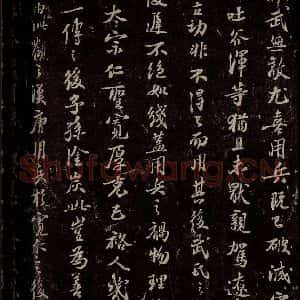 武無敵尤喜用兵既已破滅
吐谷渾等猶且未厭親駕遼
立功非不得已而用其後武氏之
陵遲不絕如綫蓋用兵之禍物理
太宗仁聖寬厚克己裕人幾
一傳之後子孫塗炭此豈為善
由此觀之漢唐用兵於寬仁之後
Shufawang.CN